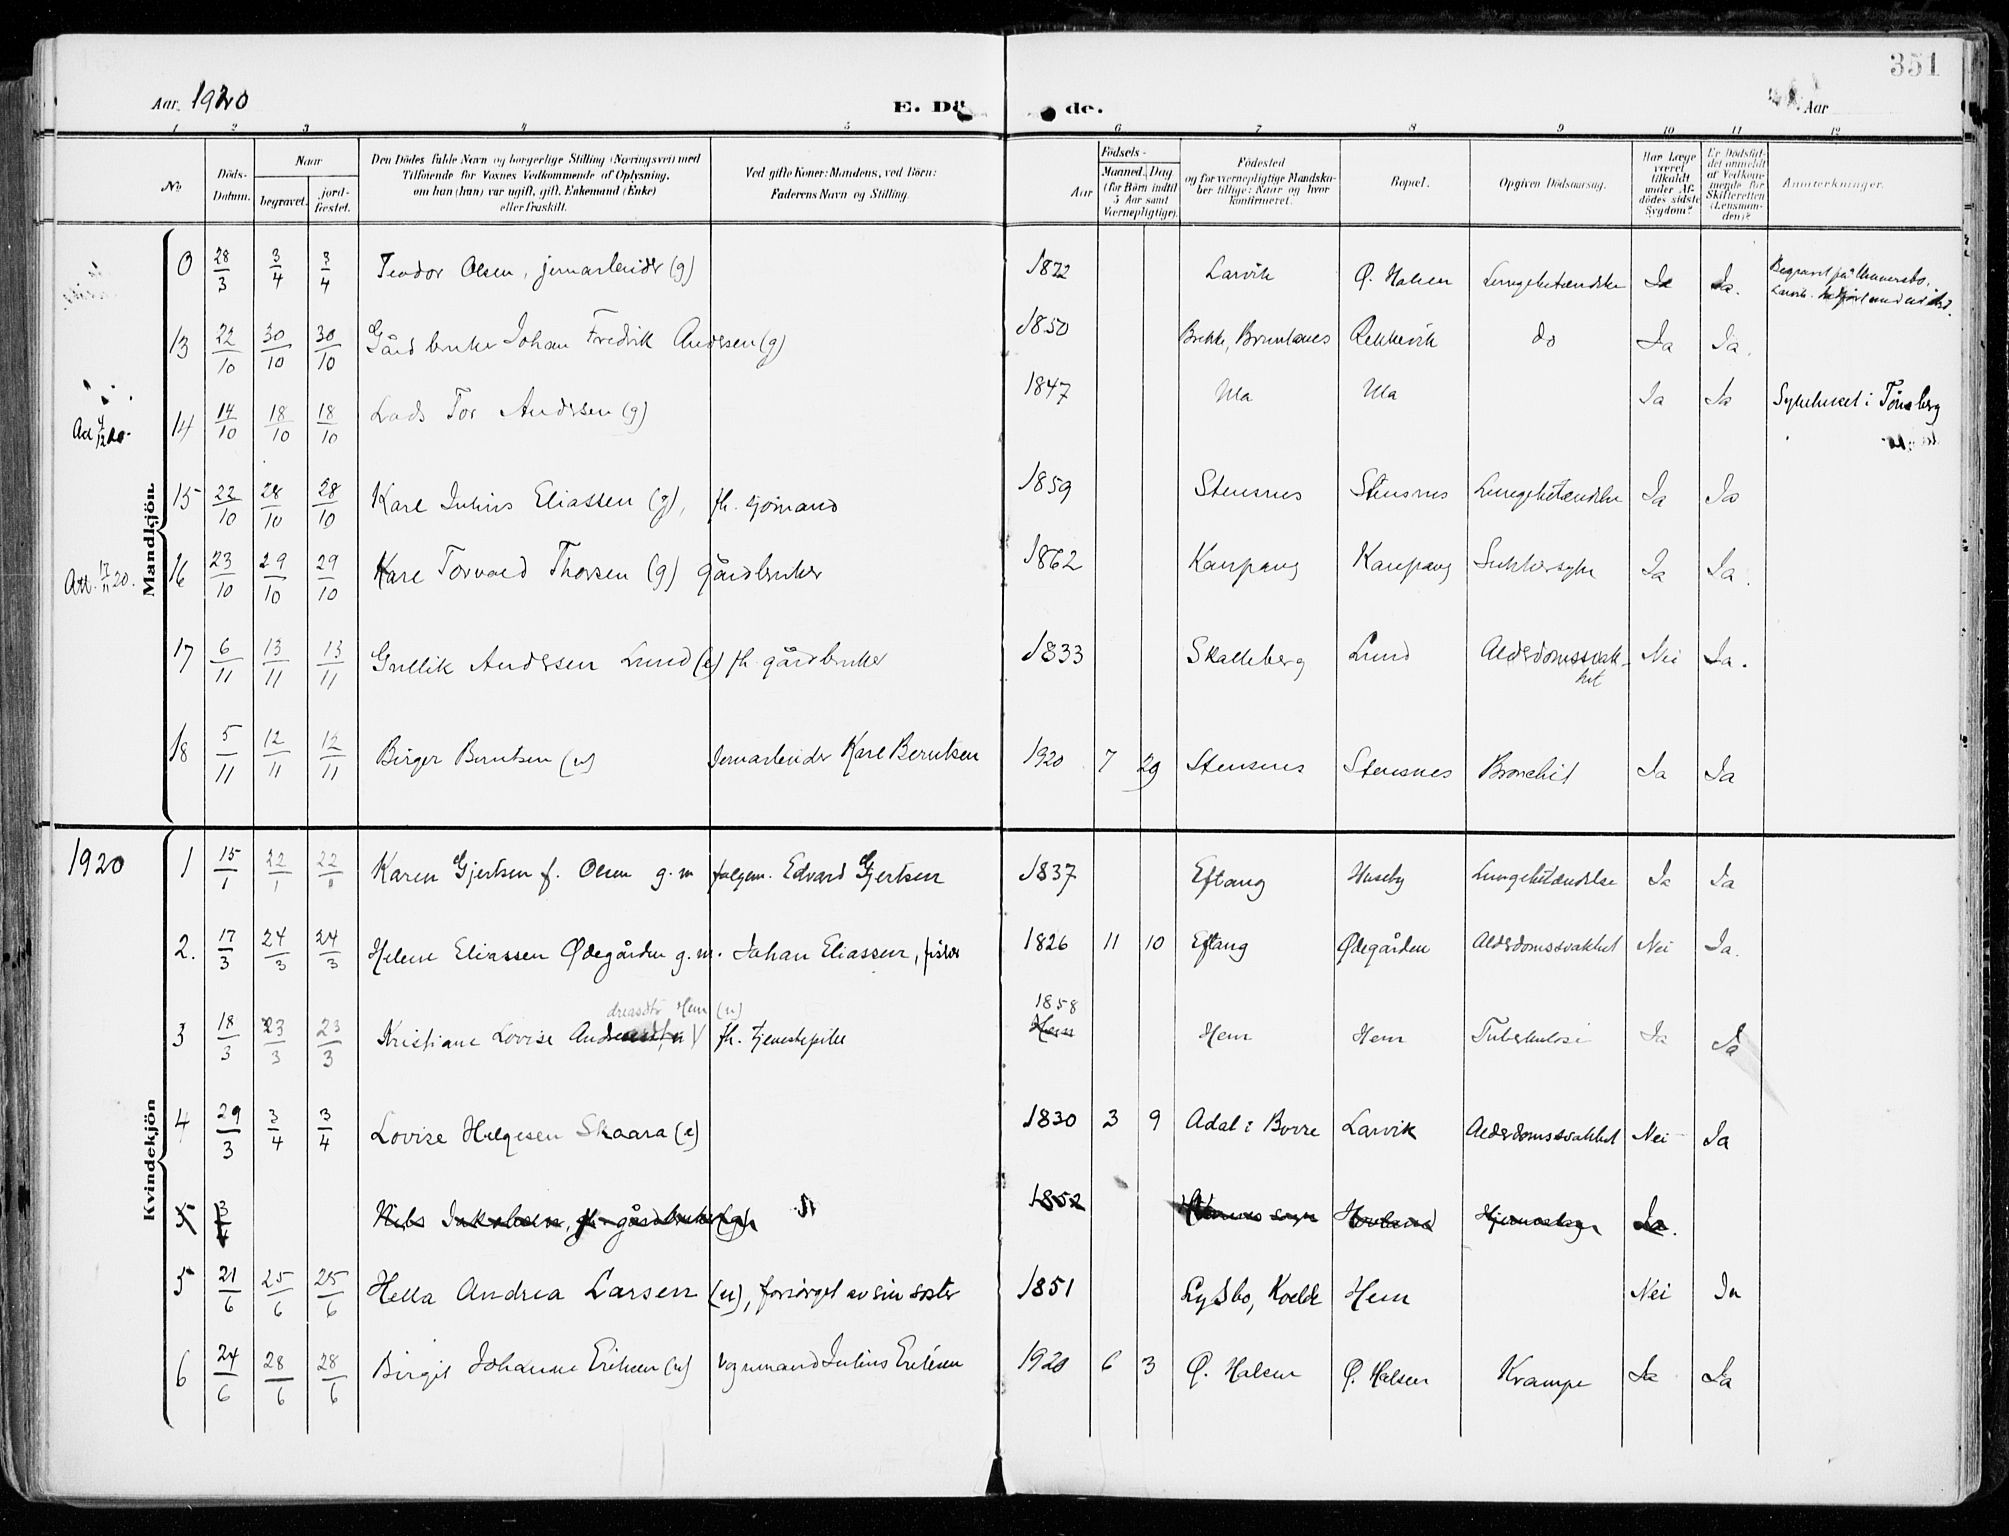 351
Aar 1920 E. Dö de. Aar
1 2 3 4 5 6 7 8 9 10 11 12
No Döds-Datum. Naar begravet. jord-fæstet. Den Dödes fulde Navn og borgerlige Stilling (Næringsvei) med Tilföiende for Voxnes Vedkommende af Oplysning, om han (hun) var ugift, gift, Enkemand (Enke) eller fraskilt. Ved gifte Koner: Mandens, ved Börn: Faderens Navn og Stilling. Födsels- Aar Maaned. Dag (for Börn indtil 5 Aar samt Værnepligtige). Födested og for værnepligtige Mandskaber tillige: Naar og hvor konfirmeret. Bopæl. Opgiven Dödsaarsag. Har Læge været tilkaldt under Afdödes sidste Sygdom? Er Dödsfaldet anmeldt af Vedkommende for Skifteretten (Lensmanden)? Anmærkninger.
Mandkjön
0 28/3 3/4 3/4 Teodor Olsen, jernarbeider (g) 1872 Larvik Ø. Halsen Lungebetændelse Ja Ja. Begravet på
13 22/10 30/10 30/10 Gårdbruker Johan Fredrik Andersen (g) 1850 Brekke, Brunlanes Rekkevik do Ja Ja.
14 14/10 18/10 18/10 Lods Tor Andersen (g) 1847 Ula Ula Ja Ja Sykehuset i Tönsberg
15 22/10 28/10 28/10 Karl Julius Eliassen (g), fh. sjömand 1859 Stensnes Stensnes Lungebetændelse Ja Ja
Att. 17/11 20. 16 23/10 29/10 29/10 Karl Torvald Thorsen (g) gårdbruker 1862 Kaupang Kaupang Sukkersyke Ja Ja.
17 6/11 13/11 13/11 Gullik Andersen Lund (e) fh. gårdbruker 1833 Skalleberg Lund Alderdomssvakhet Nei Ja.
18 5/11 12/11 12/11 Birger Berntsen (u) Jernarbeider Karl Berntsen 1920 7 29 Stensnes Stensnes Bronchit Ja Ja
Kvindekjön
1920 1 15/1 22/1 22/1 Karen Gjertsen f. Olsen g. m. Edvard Gjertsen 1837 Eftang Huseby Lungebetændelse Ja Ja
2. 17/3 24/3 24/3 Helene Eliassen Ødegården g. m. Johan Eliassen, fisker 1826 11 10 Eftang Ødegården Alderdomssvakhet Nei Ja.
3 18/3 23/3 23/3 Kristiane Lovise Andreasdtr Hem (u) fh. tjenestepike 1858 Hem Hem Tuberkulose Ja Ja
4 29/3 3/4 3/4 Lovise Helgesen Skaara (e) 1830 3 9 Adal i Borre Larvik Alderdomssvakhet Nei Ja
5 3/4 Nils Jakobsen, fh. gårdbruker (g) 1852 sogn Ja.
5 21/6 25/6 25/6 Hella Andrea Larsen (u), forsörget av sin söster 1851 Lysbo, Kvelde Hem Nei Ja
6 24/6 28/6 28/6 Birgit Johanne Eriksen (u) vognmand Julius Eriksen 1920 6 3 Ø. Halsen Ø. Halsen Krampe Ja Ja